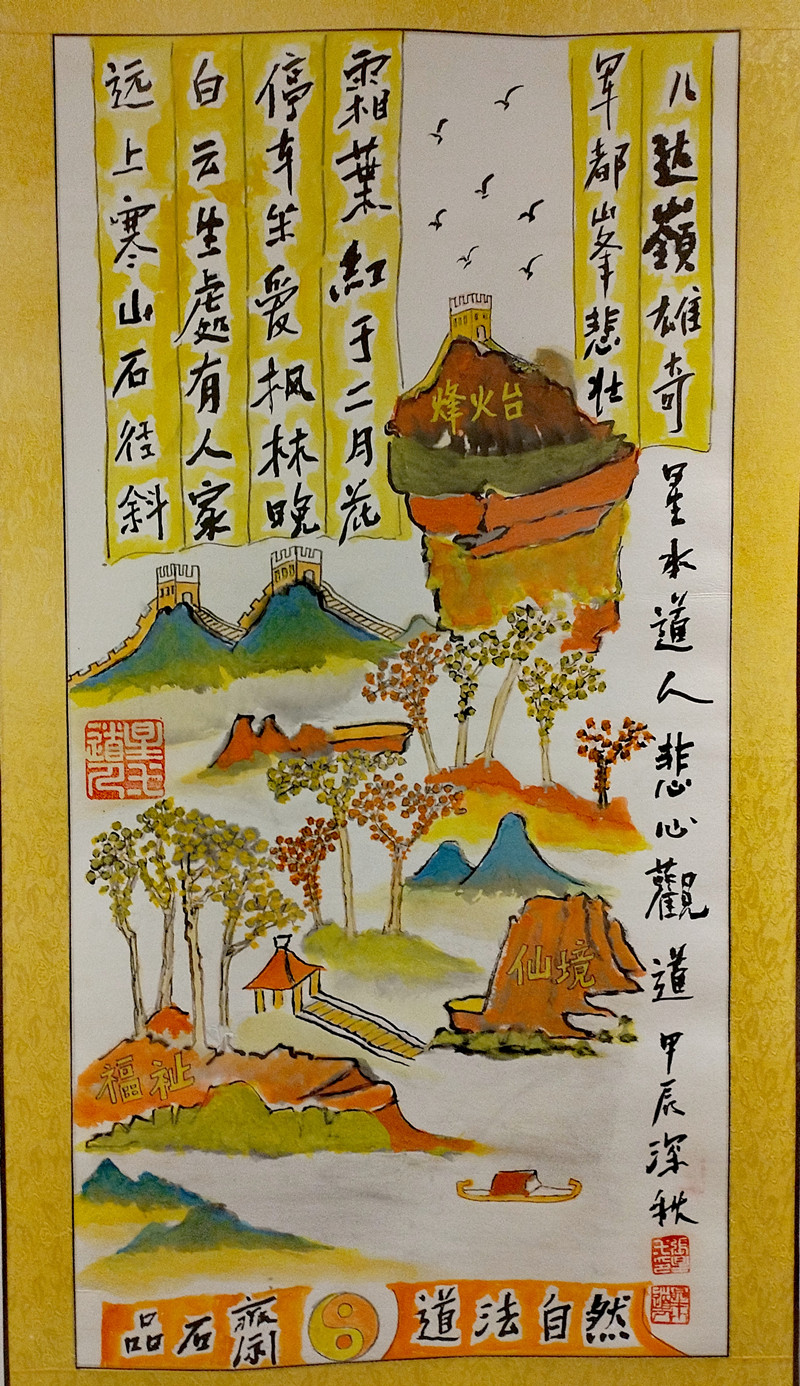 八达嶺雄奇
军都峯悲壮
远上寒山石径斜
白云生處有人家
停车坐爱枫林晚
霜葉紅于二月花
烽火台
仙境
福祉
星道人悲心觀道甲辰深秋
品石齋
道法自然